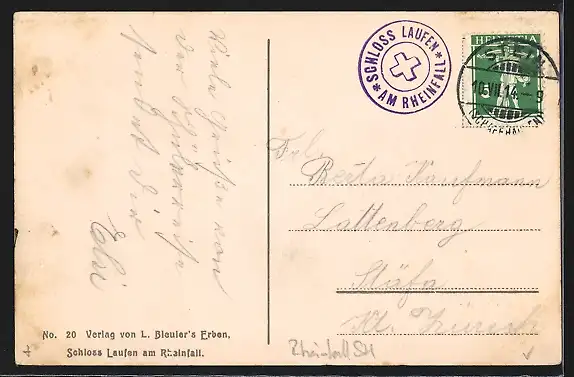 Viele Grüsse von
der Schulreise
sendet Dir
Elsi
No. 20 Verlag von L. Bleuler's Erben,
Schloss Laufen am Rheinfall.
SCHLOSS LAUFEN
* AM RHEINFALL *
HELVETIA
STEIN
10.VII.14.-9
(SCHAFFHAUSEN)
Frl.
Berta Kaufmann
Lattenberg
Stäfa
Kt. Zürich
Rheinfall SH